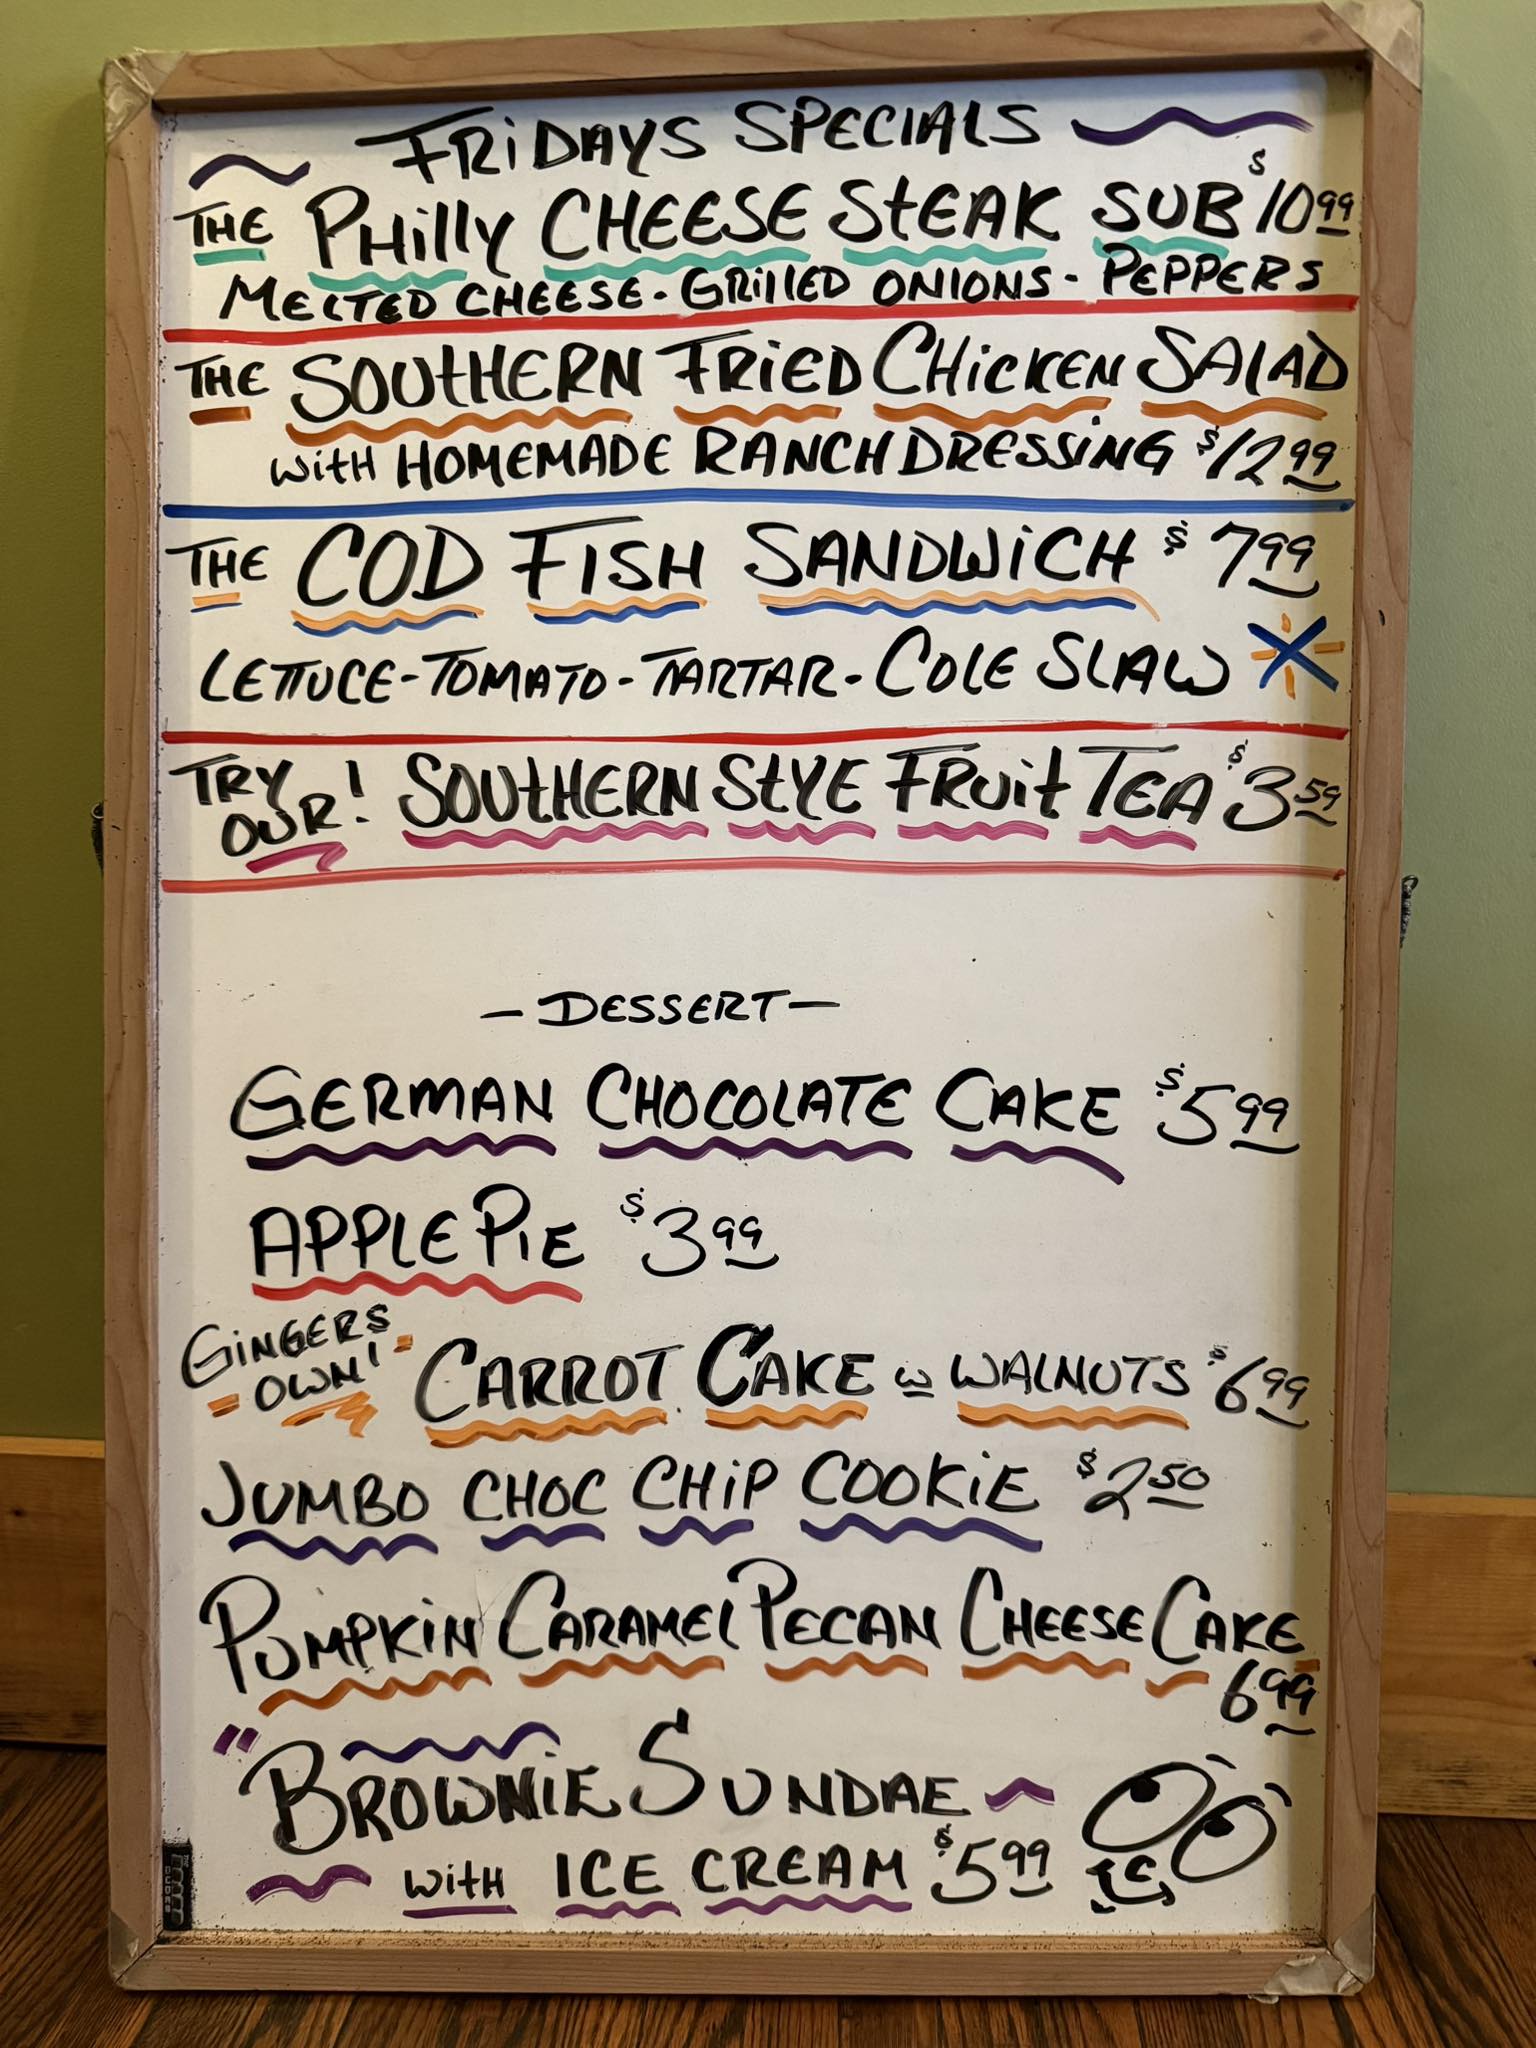 FRIDAYS SPECIALS
THE PHILLY CHEESE STEAK SUB $10.99
MELTED CHEESE - GRILLED ONIONS - PEPPERS
THE SOUTHERN FRIED CHICKEN SALAD
WITH HOMEMADE RANCH DRESSING $12.99
THE COD FISH SANDWICH $7.99
LETTUCE - TOMATO - TARTAR - COLE SLAW
TRY OUR! SOUTHERN STYLE FRUIT TEA $3.59
- DESSERT -
GERMAN CHOCOLATE CAKE $5.99
APPLE PIE $3.99
GINGERS OWN! CARROT CAKE W WALNUTS $6.99
JUMBO CHOC CHIP COOKIE $2.50
PUMPKIN CARAMEL PECAN CHEESE CAKE
6.99
"BROWNIE SUNDAE
WITH ICE CREAM $5.99